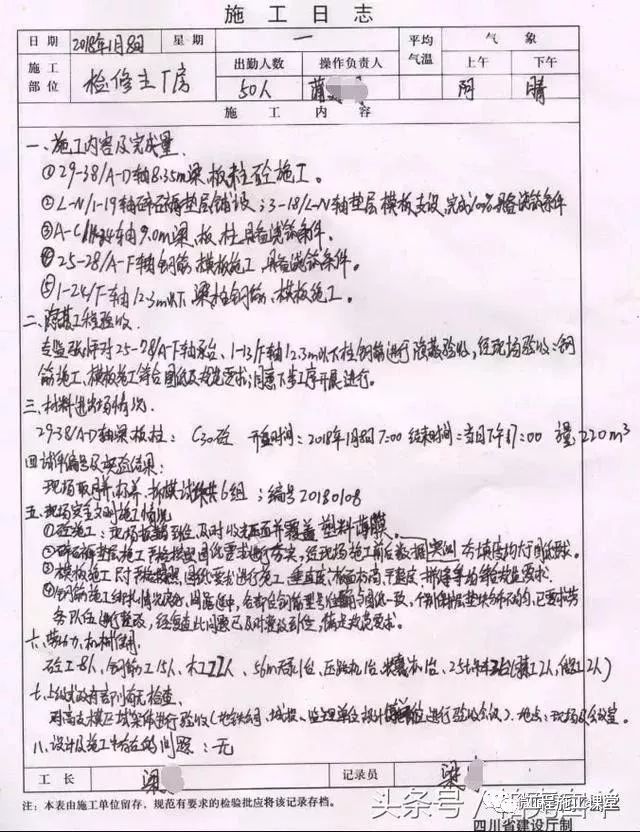 施工日志
日期 2018年1月8日 星期 一 平均气温 气象
施工部位 检修主厂房 出勤人数 操作负责人 上午 下午
50人 阴 晴
施工内容
一、施工内容及完成量
①29-38/A-D轴8.35m梁、板、柱砼施工。
②L-N/1-19轴碎石褥垫层铺设；3-18/L-N轴垫层模板支设,完成100%具备浇筑条件
③A-C 轴9.0m梁、板、柱具备浇筑条件.
④25-28/A-F轴钢筋、模板施工,具备浇筑条件。
⑤1-24/F轴12.3m以下梁柱钢筋、模板施工。
二、隐蔽工程验收
专监 对25-28/A-F轴承台、1-13/F轴12.3m以下柱钢筋进行隐蔽验收,经现场验收:钢
筋施工、模板施工符合图纸及规范要求;同意下步工序开展进行。
三、材料进出场情况.
29-38/A-D轴梁板柱: C30砼 开盘时间:2018年1月8日7:00 结束时间:当日下午17:00 方量220m³
四、试件编号及实验结果:
现场取 标养、拆模试块共6组:编号20180108
五、现场安全文明施工情况
①砼施工:现场振捣到位,及时收 面并覆盖塑料薄膜.
②碎石褥垫层施工严格按照图纸要求进行夯实,经现场施工前后数据实测 夯填度均大于图纸要求.
③模板施工尺寸严格按照图纸要求进行施工,垂直度、 标高、平整度、拼缝等均符合规范要求.
④钢筋施工绑扎情况良好,间距适中, 钢筋型号 与图纸一致,个别保护层垫块分布不均,已要求劳
务队伍进行整改,经复查此问题已及时整改到位,满足规范要求.
六、劳动力、机械使用
砼工8人、钢筋工15人、木工 人、56m天泵1台、压路机1台、装载机1台、25t
七、上级或政府部门有无检查.
对高支模区域架体进行验收( 、城投、监理单位、设计单位进行验收会议).地点:现场及会议室.
八、设计及施工中存在的问题:无
工长 梁 记录员 梁
注:本表由施工单位留存,规范有要求的检验批应将该记录存档。
四川省建设厅制
头条号
微工程施工课堂